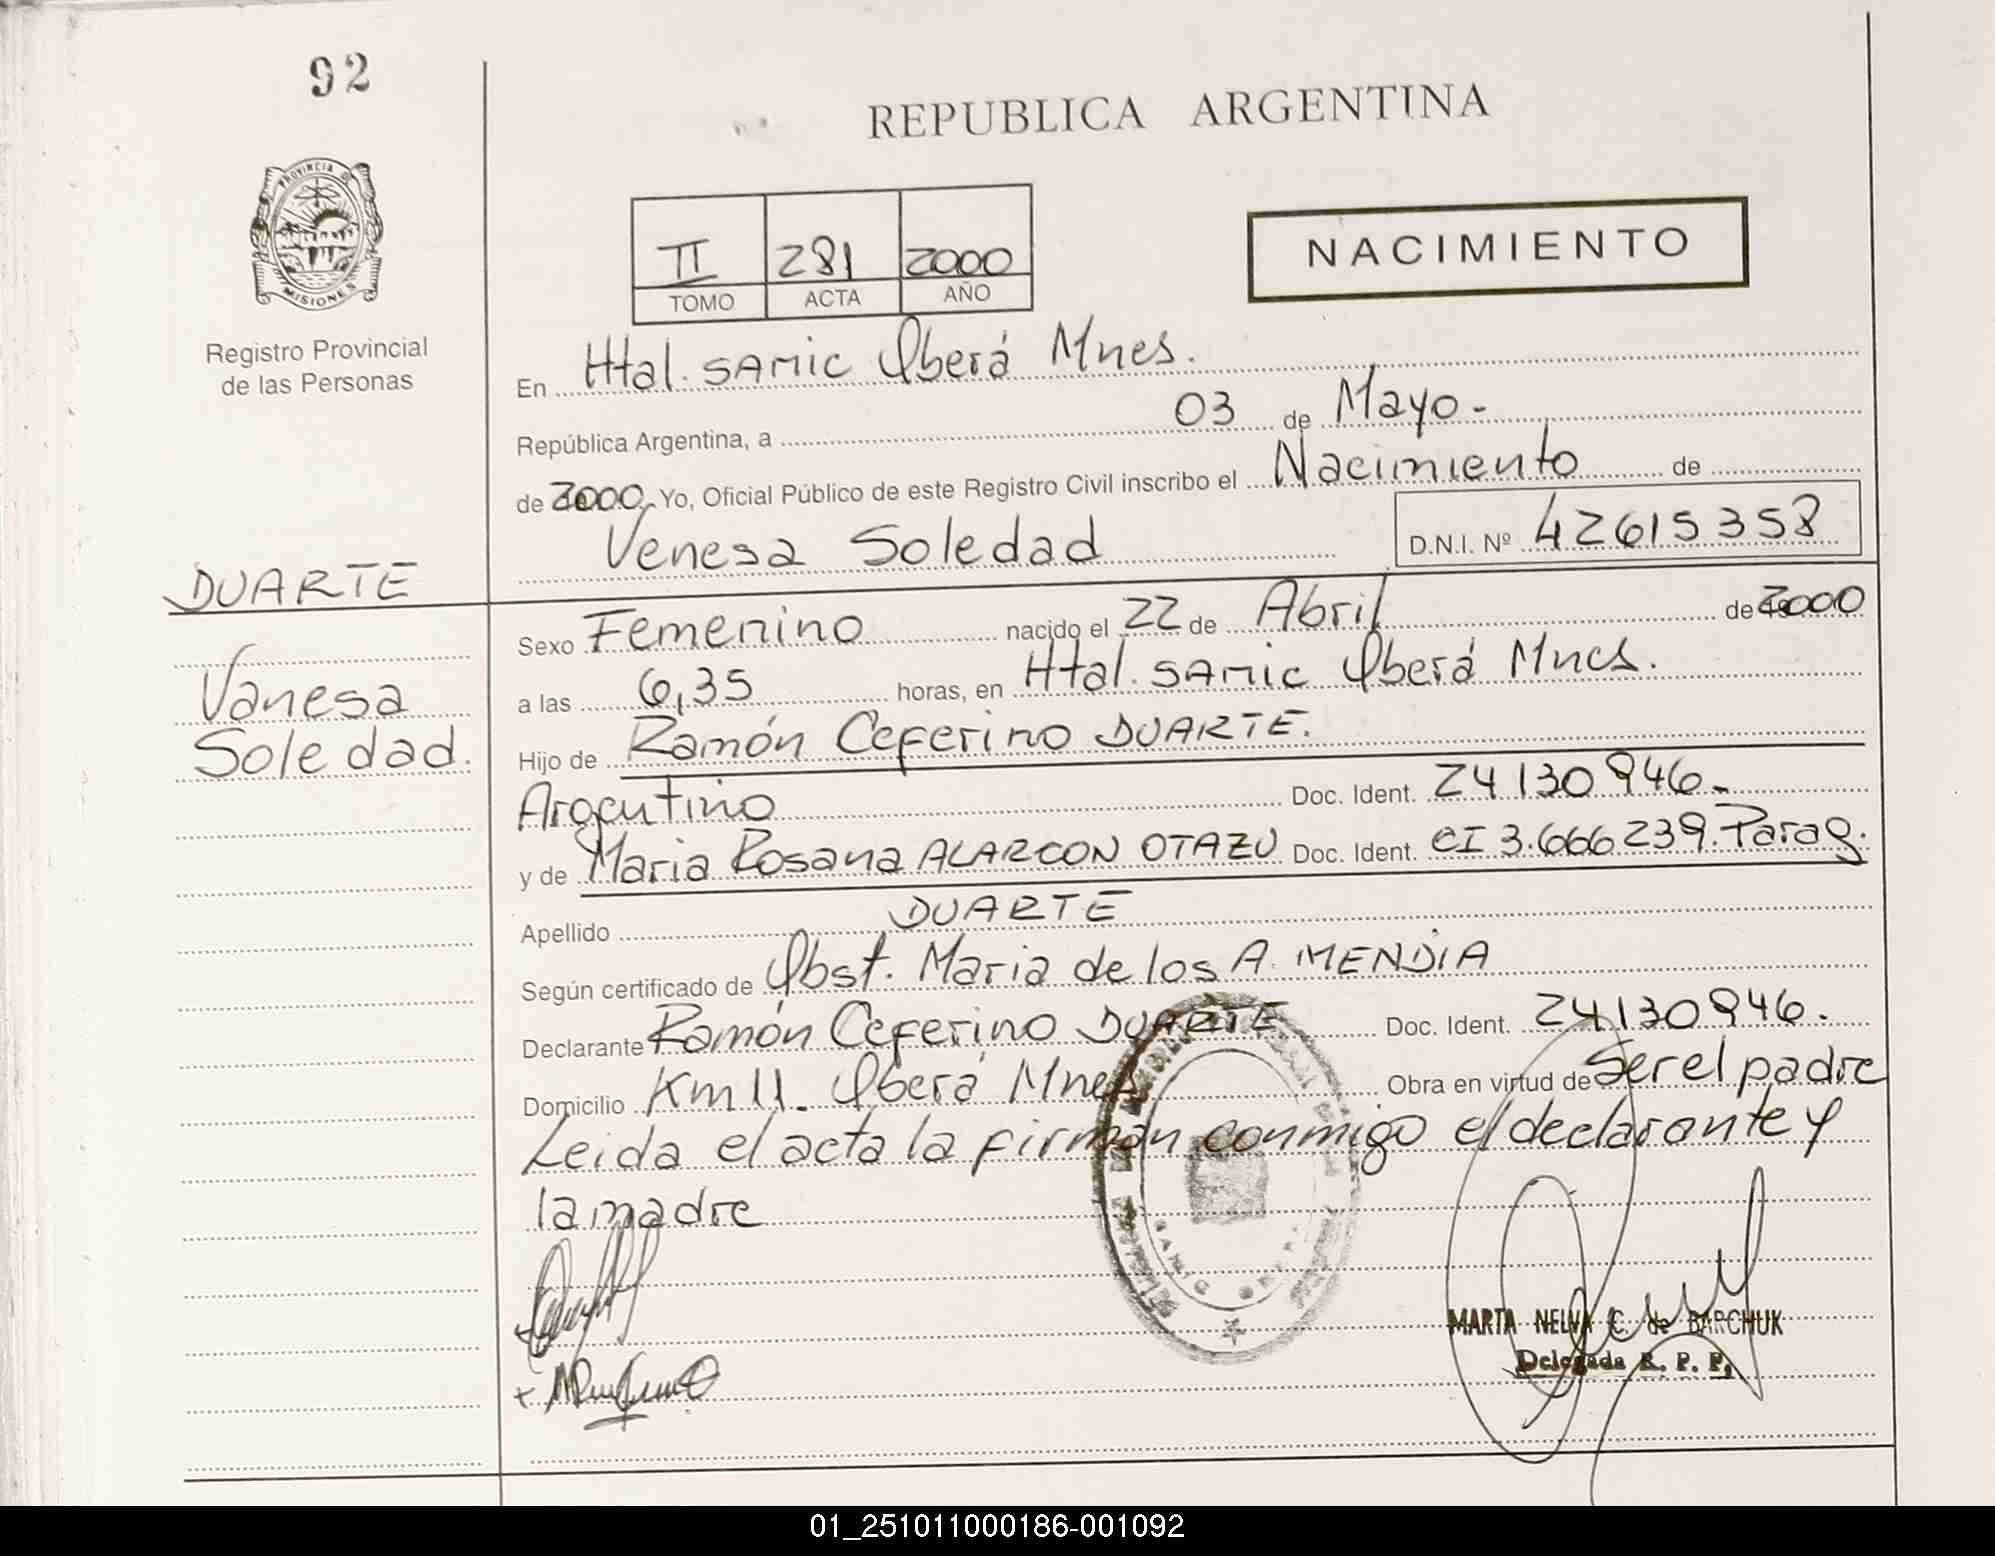 92
REPUBLICA ARGENTINA
PROVINCIA D
MISIONES
Registro Provincial
de las Personas
II 281 2000
TOMO ACTA AÑO
NACIMIENTO
En Htal. SAMIC Oberá Mnes.
República Argentina, a 03 de Mayo.-
de 2000. Yo, Oficial Público de este Registro Civil inscribo el Nacimiento de
Venesa Soledad D.N.I. Nº 42615358
DUARTE
Vanesa
Soledad.
Sexo Femenino nacido el 22 de Abril de 2000
a las 6,35 horas, en Htal. SAMIC Oberá Mnes.
Hijo de Ramón Ceferino DUARTE.
Argentino Doc. Ident. 24130946.-
y de Maria Rosana ALARCON OTAZU Doc. Ident. CI 3.666.239.Parag.
Apellido DUARTE
Según certificado de Obst. Maria de los A. MENDIA
Declarante Ramón Ceferino DUARTE Doc. Ident. 24130946.
Domicilio Km 11. Oberá Mnes Obra en virtud de Ser el padre
Leida el acta la firman conmigo el declarante y
la madre
MARTA NELVA C. de BARCHUK
Delegada R. P. P.
01_251011000186-001092